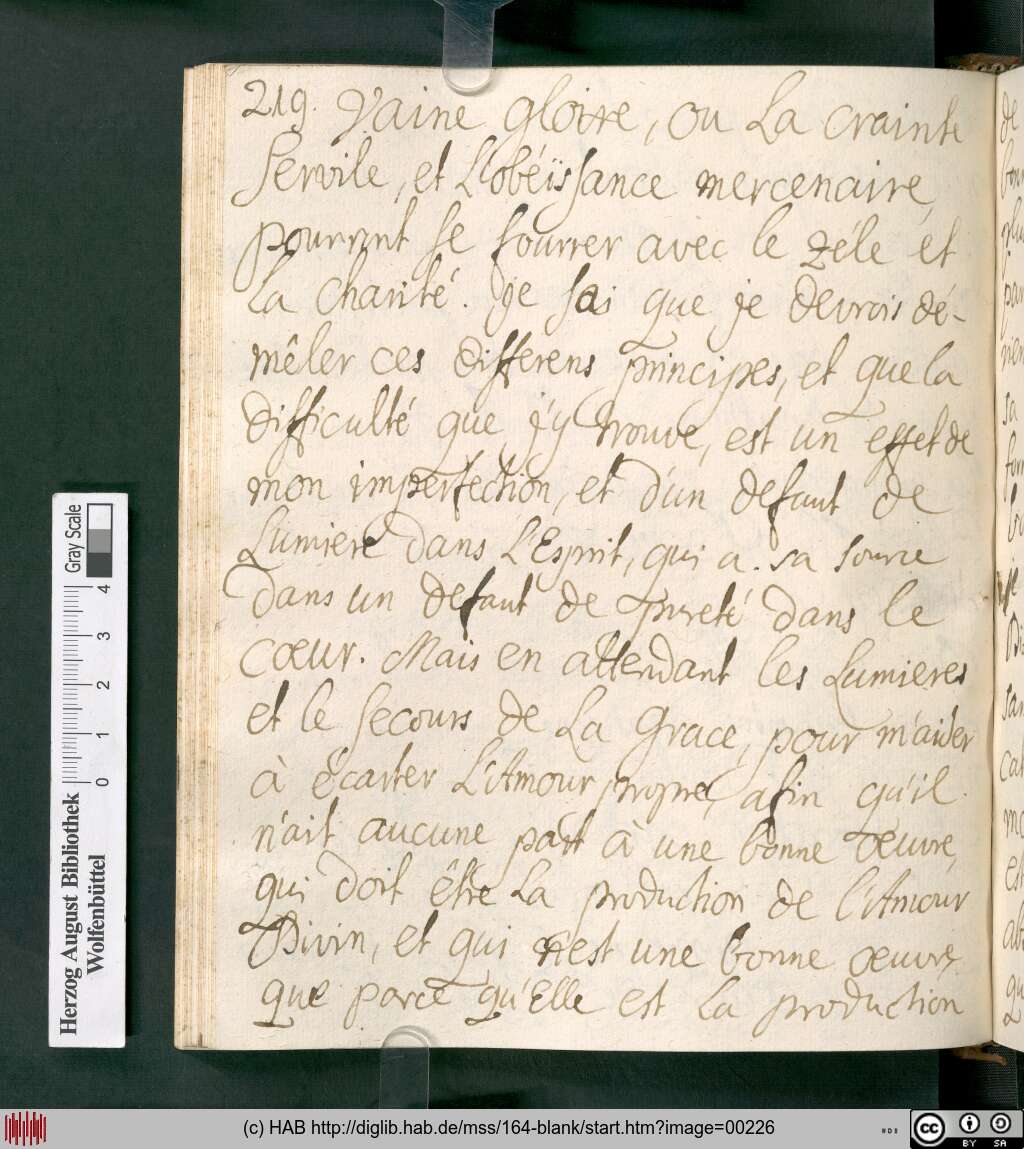 219. Vaine gloire, ou La crainte
servile, et L'obéissance mercenaire,
pourront se fourrer avec le zéle et
La charité. Je sai que je devrois dé-
mêler ces differens principes, et que la
difficulté que j'y trouve, est un effet de
mon imperfection, et d'un defaut de
Lumiere dans L'Esprit, qui a sa source
dans un defaut de pureté dans le
cœur. Mais en attendant les Lumieres
et le secours de La Grace, pour m'aider
à écarter L'Amour propre, afin qu'il
n'ait aucune part à une bonne œuvre,
qui doit être La production de l'Amour
Divin, et qui n'est une bonne œuvre
que parce qu'Elle est La production
Gray Scale
0 1 2 3 4
Herzog August Bibliothek
Wolfenbüttel
(c) HAB http://diglib.hab.de/mss/164-blank/start.htm?image=00226
cc BY SA